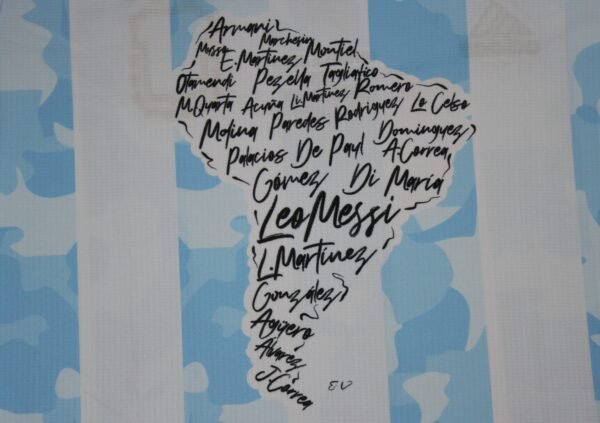 Armani
Musso Marchesin
E.Martínez Montiel
Otamendi Pezella Tagliafico
M.Quarta Acuña Li.Martínez Romero
Molina Paredes Rodríguez Lo Celso
Palacios De Paul Domínguez
A.Correa
Gómez Di María
Leo Messi
L.Martínez
González
Agüero
Álvarez
J.Correa